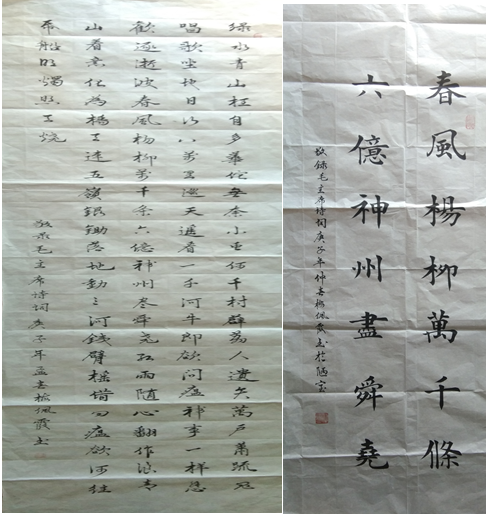 綠水青山枉自多華佗無奈小虫何千村薜荔人遺矢萬戶蕭疏鬼
唱歌坐地日行八萬里巡天遙看一千河牛郎欲問瘟神事一樣悲
歡逐逝波春風楊柳萬千條六億神州盡舜堯紅雨隨心翻作浪青
山着意化為橋天連五嶺銀鋤落地動三河鐵臂搖借問瘟欲何往
紙船明燭照天燒
敬录毛主席詩詞庚子年孟春楊佩霞書
春風楊柳萬千條
六億神州盡舜堯
敬錄毛主席詩詞庚子年仲春楊佩霞書於陋室